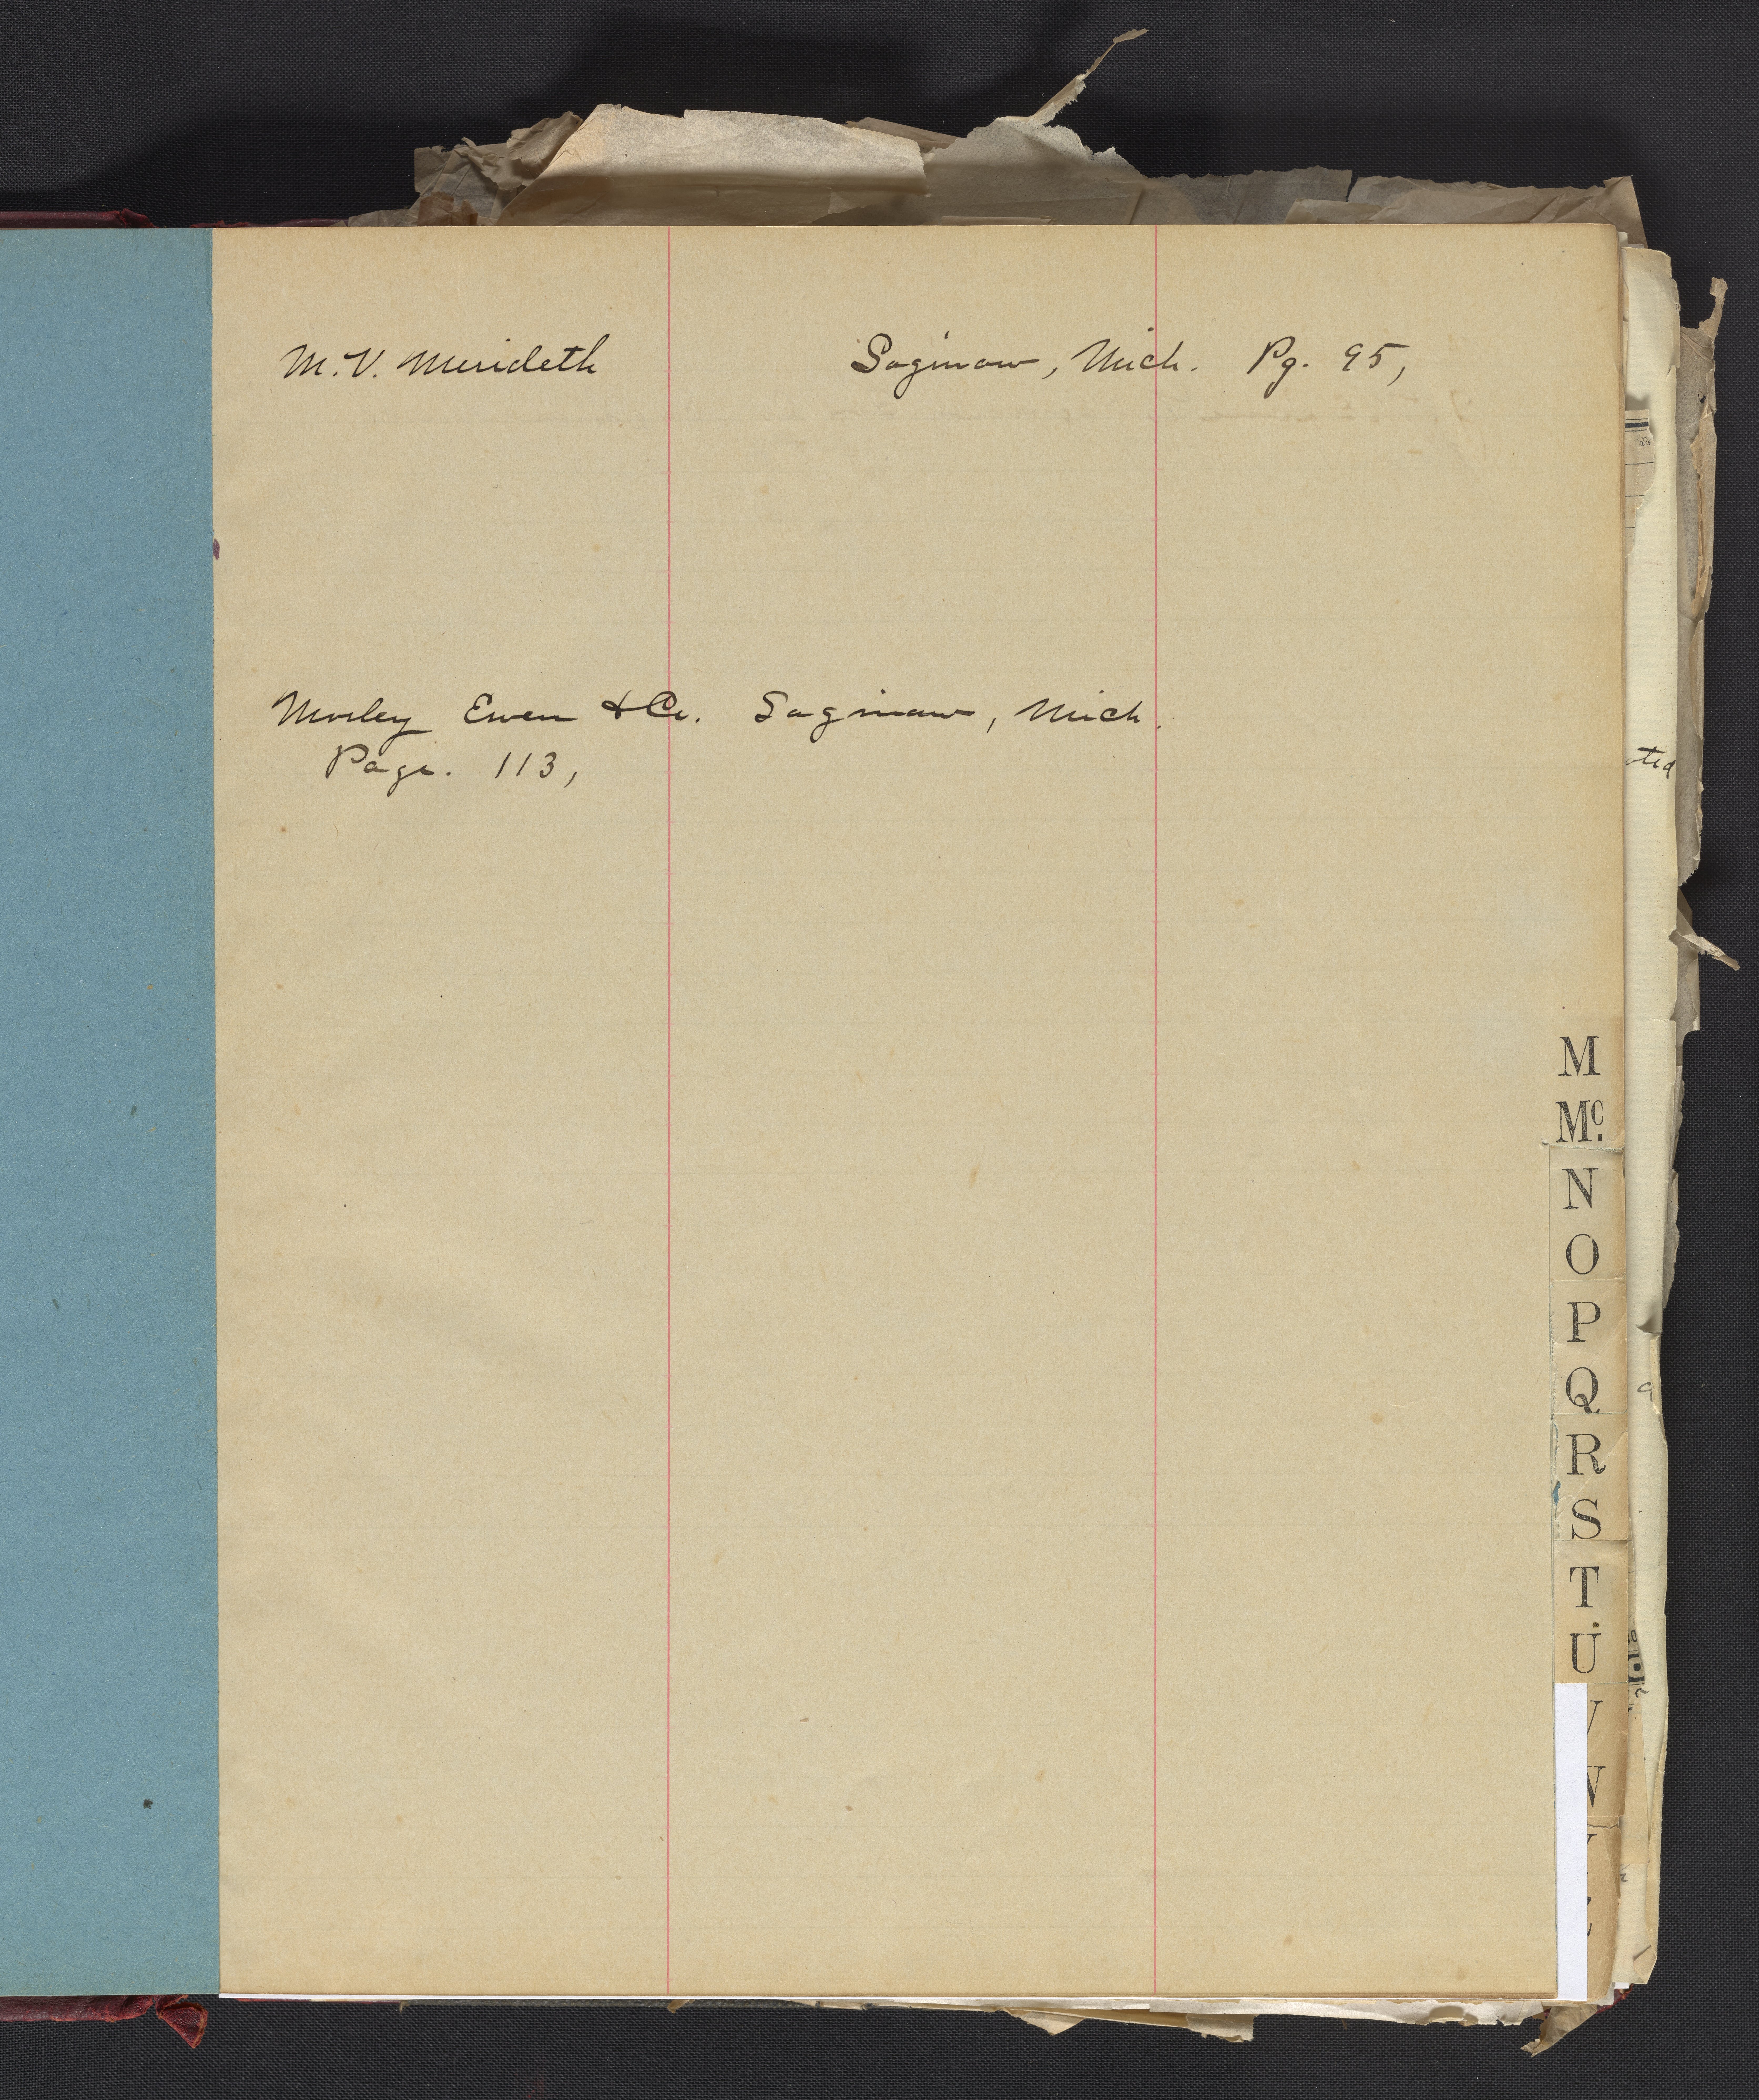 M. V. Merideth Saginaw, Mich. Pg. 95,
Morley Ewen & Co. Saginaw, Mich.
Page. 113,
ted
M
Mc.
N
O
P
Q
R
S
T
U
V
W